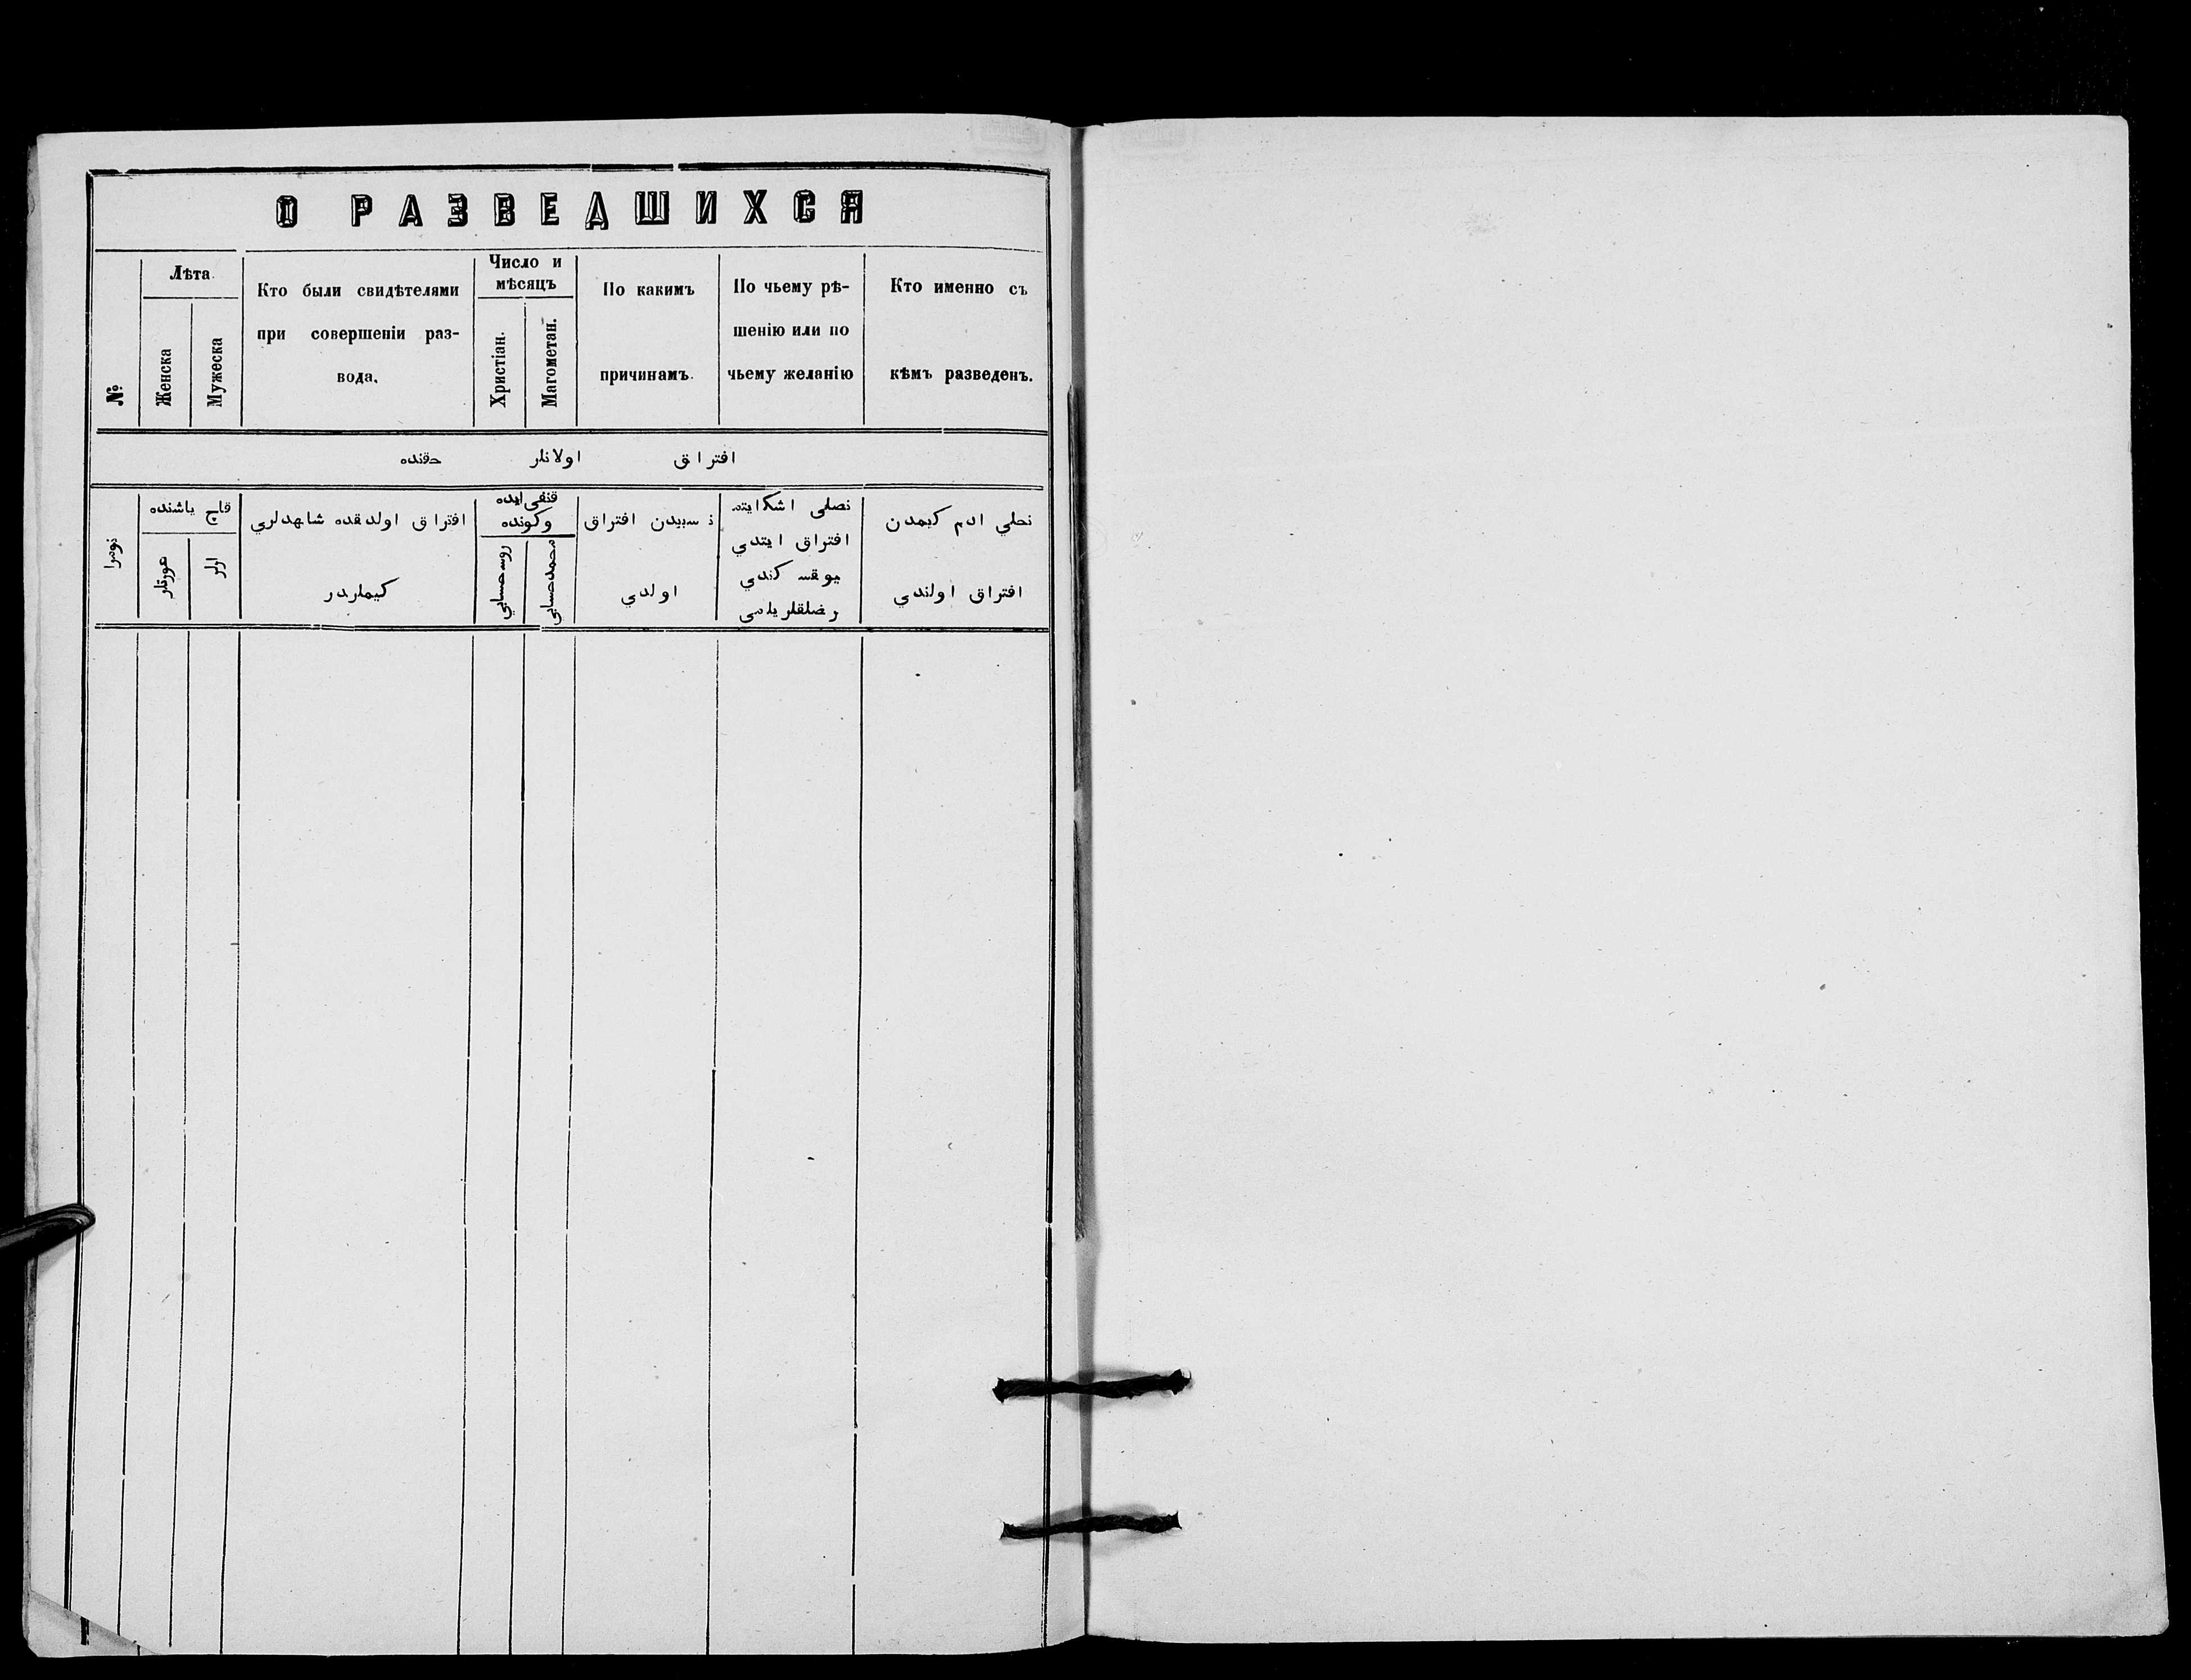 О РАЗВЕДШИХСЯ
№
Лѣта
Женска
Мужеска
Кто были свидѣтелями
при совершеніи раз-
вода.
Число и
мѣсяцъ
Христіан.
Магометан.
По какимъ
причинамъ.
По чьему рѣ-
шенію или по
чьему желанію
Кто именно съ
кѣмъ разведенъ.
افتراق اولانلر حقنده
نومرا
قاچ ياشنده
عورتلر
ارلر
افتراق اولدقده شاهدلري
كيملردر
قنغى ايده
وكونده
روسه حسابي
محمد حسابي
نه سببدن افتراق
اولدي
افتراق ايتدي
يوقسه كندي
نچلي ادم كيمدن
افتراق اولندي